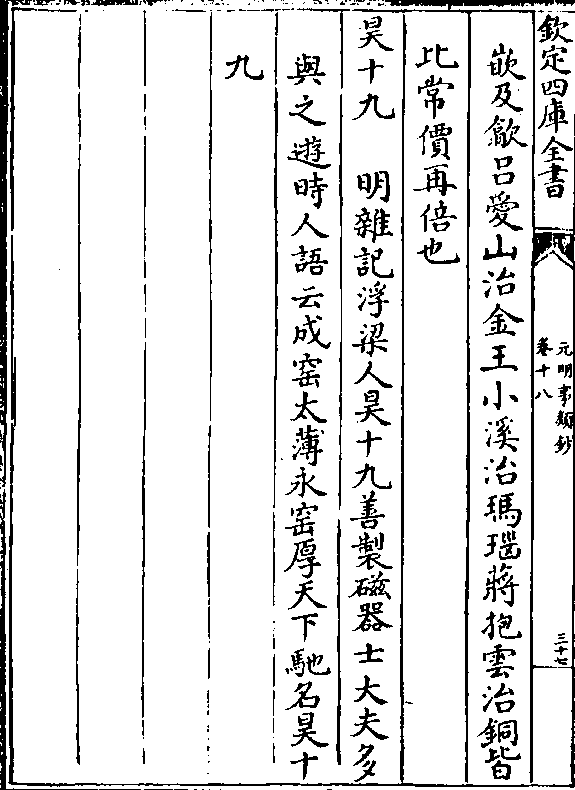 欽定四庫全書
元明事類鈔
卷十八
三十七
嵌及歙呂愛山治金王小溪治瑪瑙蔣抱雲治銅皆
比常價再倍也
昊十九　明雜記浮梁人昊十九善製磁器士大夫多
與之遊時人語云成窑太薄永窑厚天下馳名昊十
九